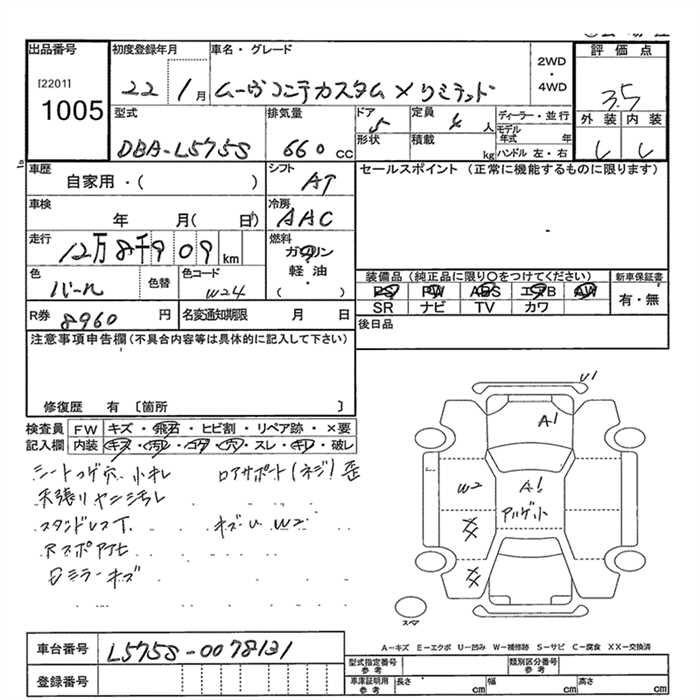 出品番号 初度登録年月 車名・グレード 評価点
[2201] 1005
22年 1月 ムーヴコンテカスタム X リミテッド 2WD・4WD 3.5
型式 排気量 ドア 定員 ディーラー・並行 外装 内装
DBA-L575S 660cc 5 4人 モデル年式 年
形状 積載 kg ハンドル 左・右
車歴 シフト セールスポイント (正常に機能するものに限ります)
自家用・( ) AT
車検 冷房
年 月( 日) AAC
走行 燃料
12万8千909km ガソリン
軽油
( )
色 色替 色コード
パール W24
装備品 (純正品に限り〇をつけてください) 新車保証書
PS PW ABS エアB AW 有・無
SR ナビ TV カワ
R券 8960円 名変通知期限 月 日 後日品
注意事項申告欄 (不具合内容等は具体的に記入して下さい)
修復歴 有 〔箇所 〕
検査員 FW キズ・飛石・ヒビ割・リペア跡・×要
記入欄 内装 キズ・汚レ・コゲ・穴・スレ・キレ・破レ
シートコゲ穴 小キレ ロアサポート(ネジ)歪
天張りヤニ汚レ
スタッドレスT. キズU W2
Rスポアナ
Dミラーキズ
U1
A1
W2 A1
アルゲ小
XX
XX
スペア
A－キズ E－エクボ U－凹み W－補修跡 S－サビ C－腐食 XX－交換済
車台番号 L575S-0078131
登録番号
型式指定番号 参考 類別区分番号 参考
車庫証明用 参考 長さ cm 幅 cm 高さ cm